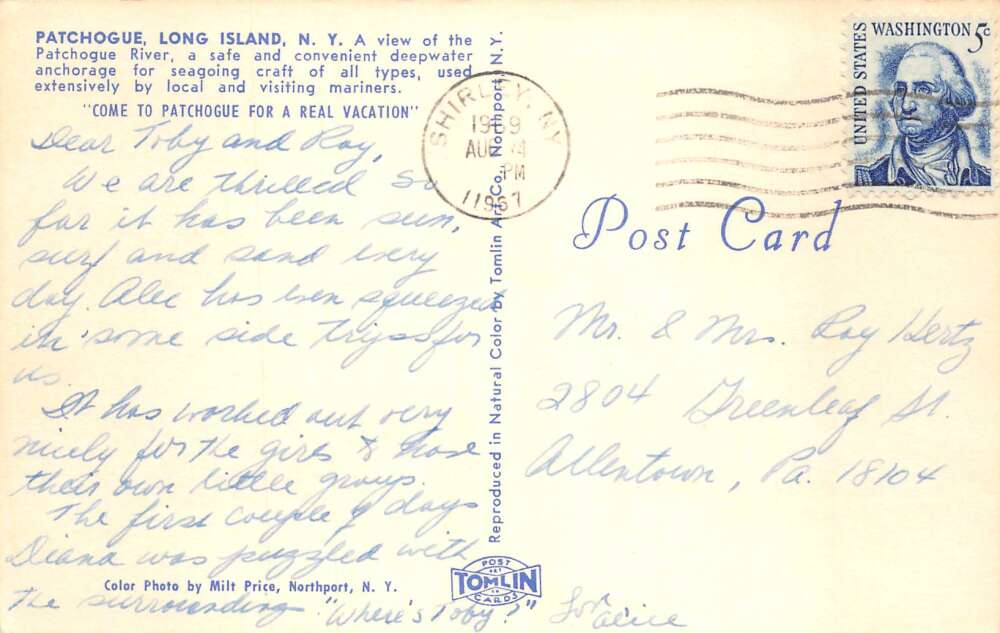 PATCHOGUE, LONG ISLAND, N. Y. A view of the
Patchogue River, a safe and convenient deepwater
anchorage for seagoing craft of all types, used
extensively by local and visiting mariners.
"COME TO PATCHOGUE FOR A REAL VACATION"
Dear Toby and Roy,
We are thrilled so
far it has been sun,
surf and sand every
day. Alec has even squeezed
in some side trips for
us.
It has worked out very
nicely for the girls & have
their own little groups.
The first couple of days
Diana was puzzled with
the surroundings "Where's Toby?"
Alice
Color Photo by Milt Price, Northport, N. Y.
Reproduced in Natural Color by Tomlin Art Co., Northport, N. Y.
POST
TOMLIN
CARDS
SHIRLEY, NY
AUG
PM
1967
UNITED STATES
WASHINGTON 5c
Post Card
Mr. & Mrs. Roy Hertz
2804 Greenleaf St.
Allentown, Pa. 18104